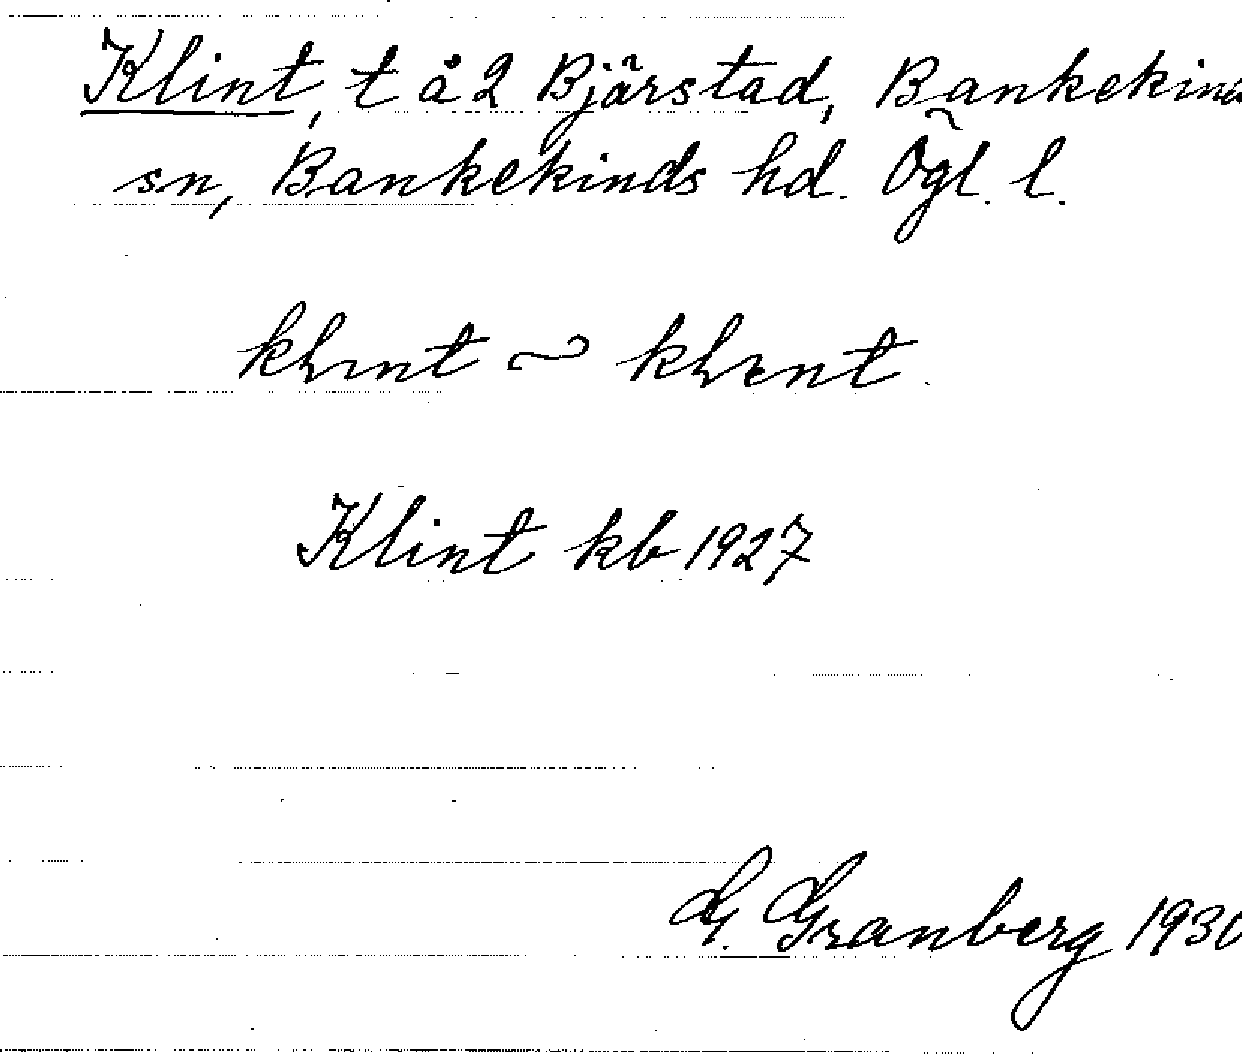 Klint, t å 2 Bjärstad, Bankekinds
sn, Bankekinds hd. Ögl. l.
Klint kb 1927
G. Granberg 1930